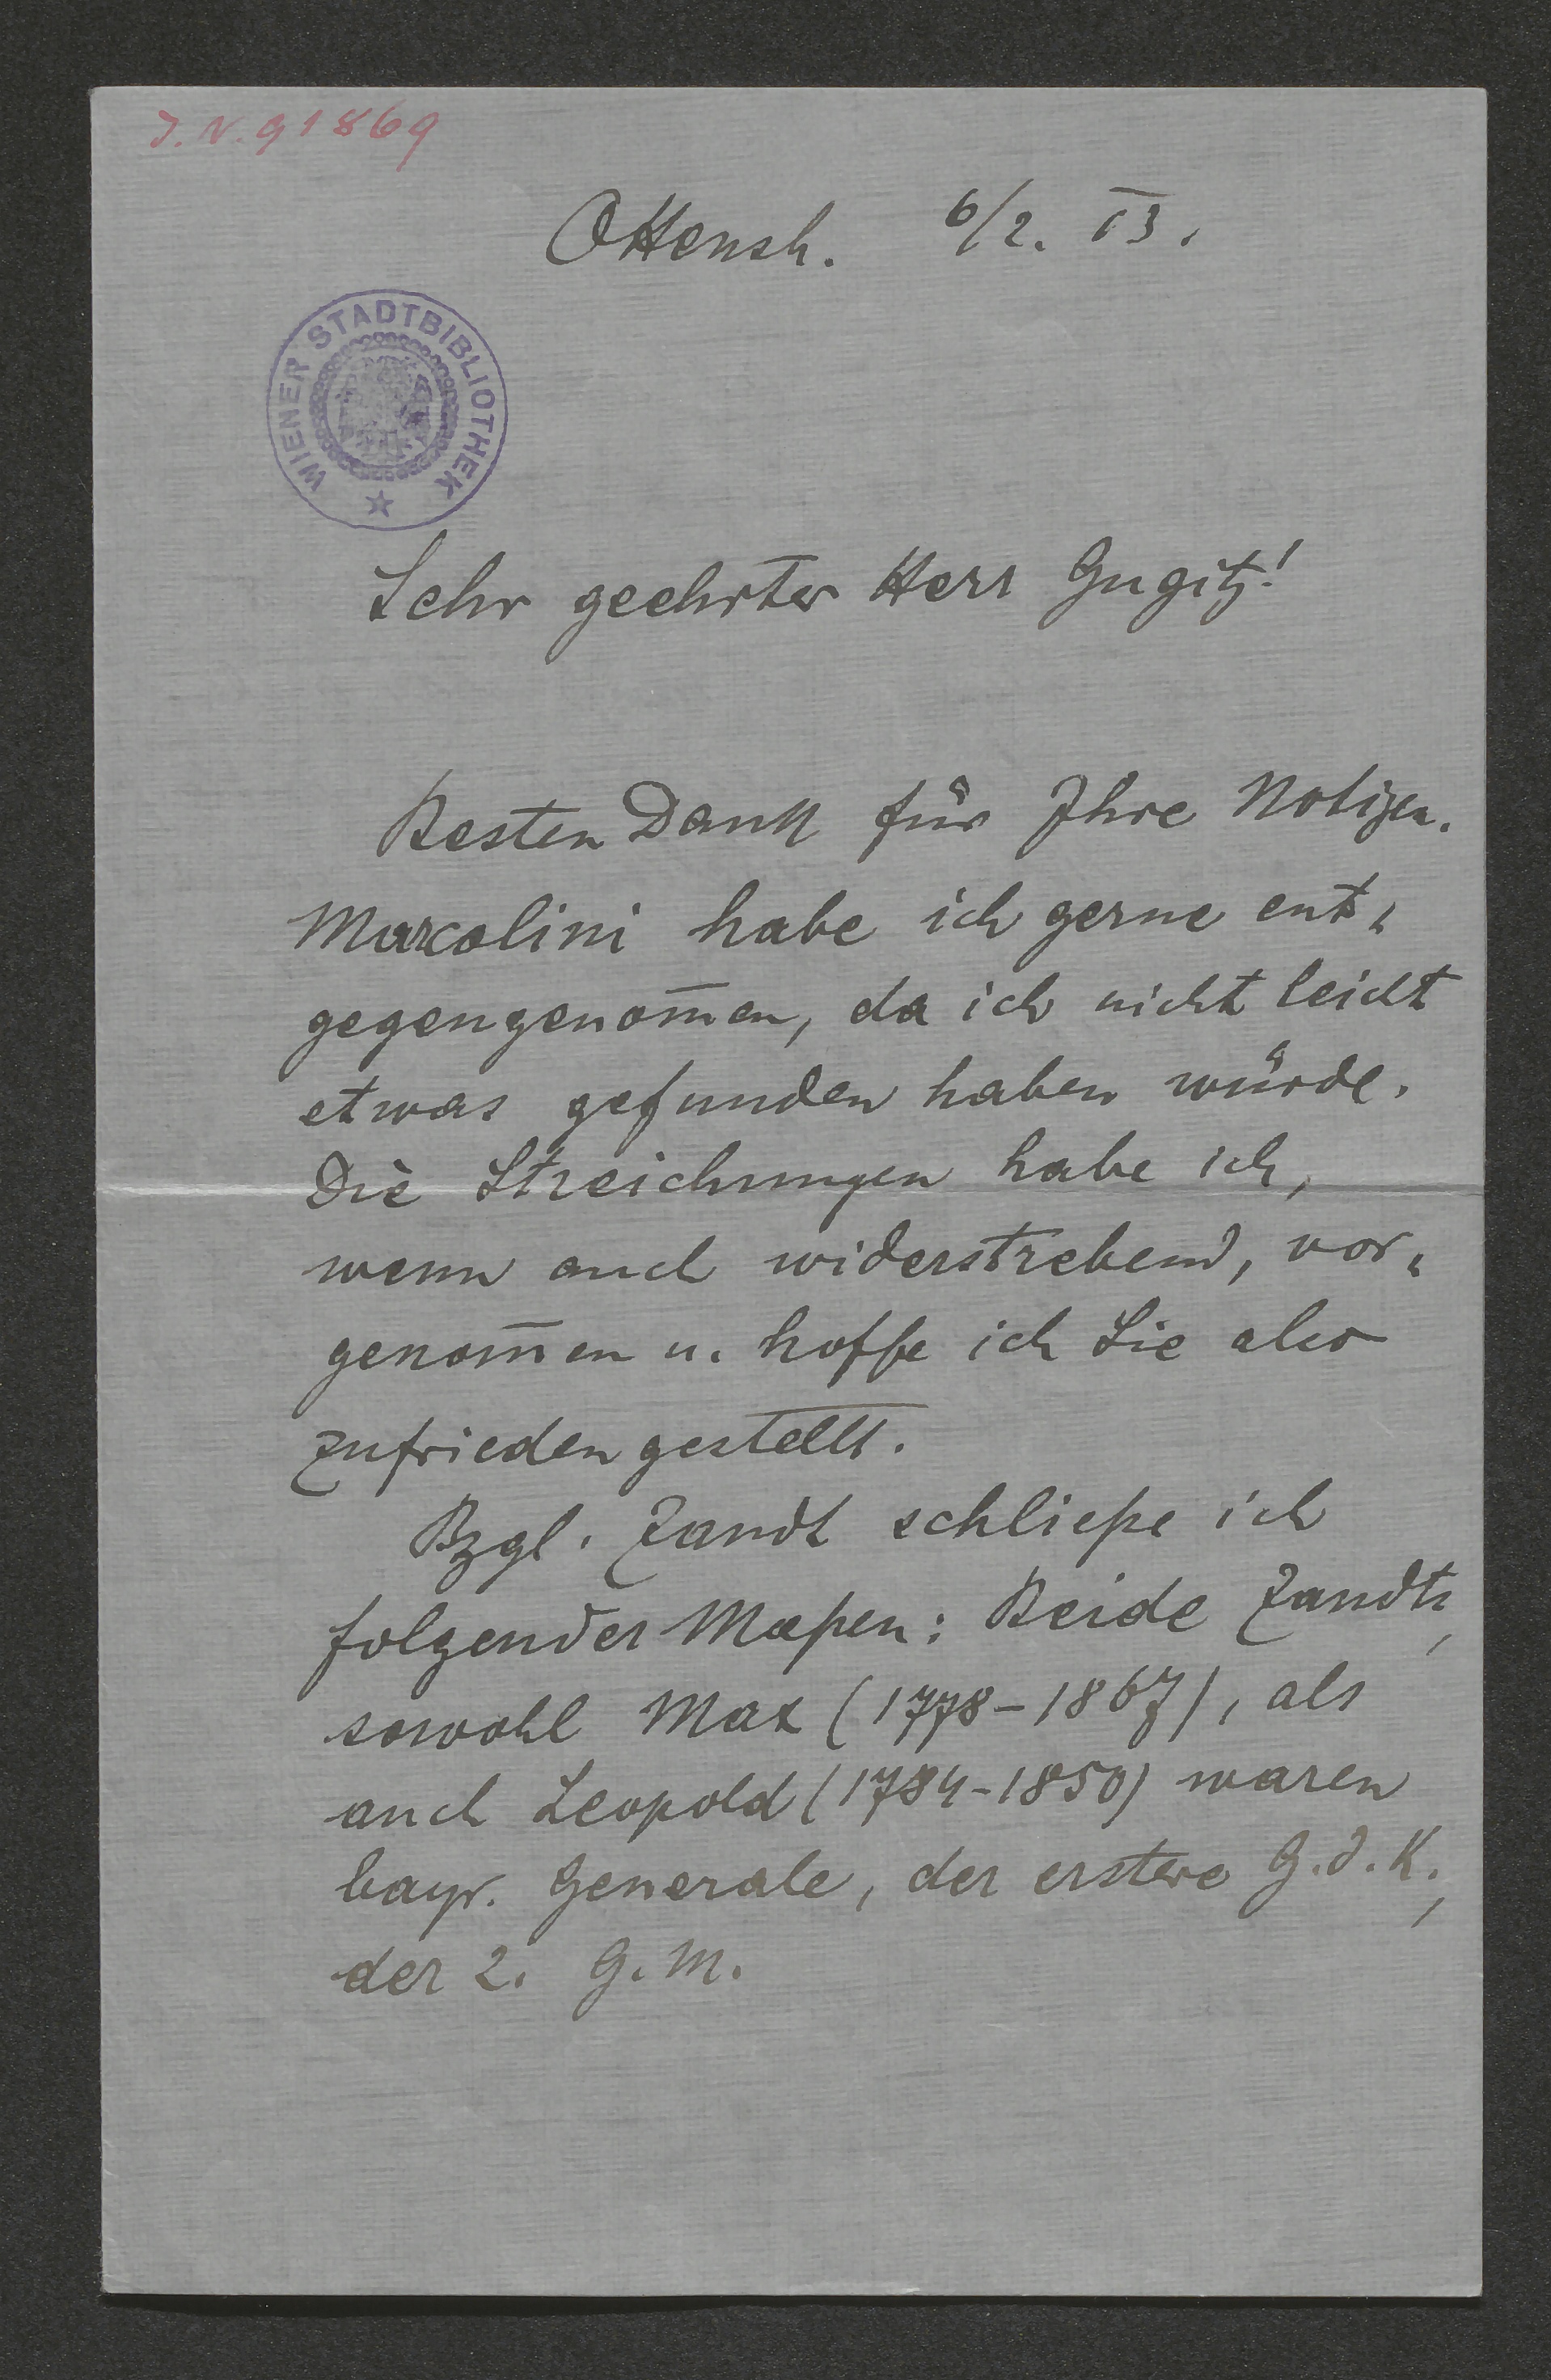 J. N. 91869
Ottensh. 6/2. 13.
WIENER STADTBIBLIOTHEK
Sehr geehrter Herr Gugitz!
Besten Dank für Ihre Notizen.
Marcolini habe ich gerne ent-
gegengenom̄en, da ich nicht leicht
etwas gefunden haben würde.
Die Streichungen habe ich,
wenn auch widerstrebend, vor-
genom̄en u. hoffe ich Sie also
zufrieden gestellt.
Bzgl. Zandt schließe ich
folgender Maßen: Beide Zandts,
sowohl Max (1778-1867), als
auch Leopold (1784-1850) waren
bayr. Generale, der erstere G. d. K.,
der 2. G. M.